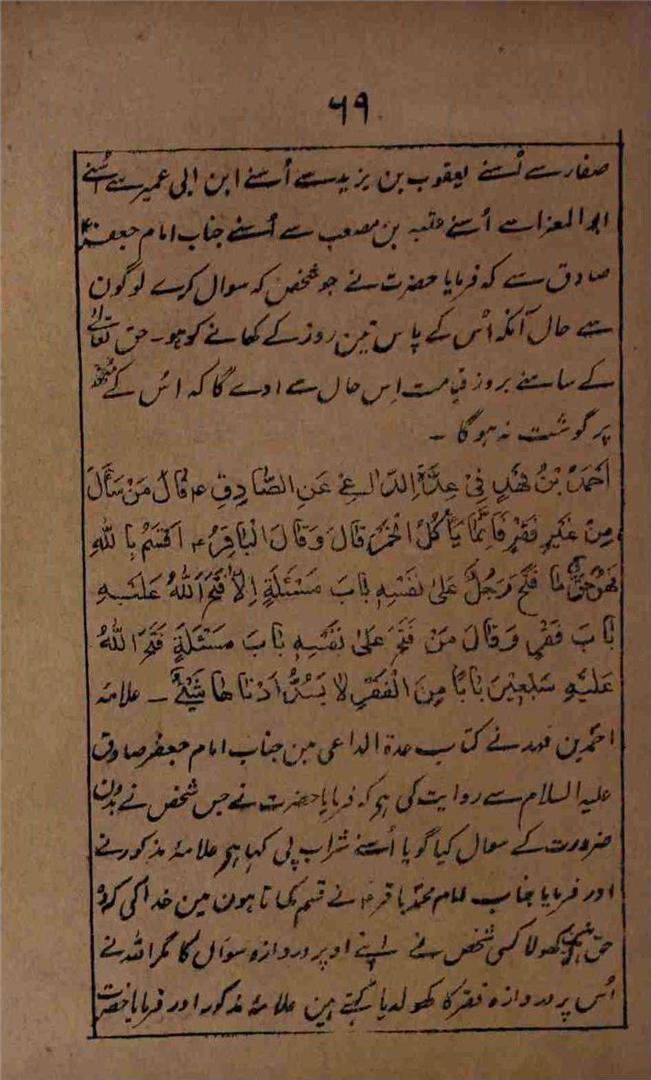 ۶۹
صفار سے اُسنے یعقوب بن یزید سے اُسنے ابن ابی عمیر سے اُسنے
ابوالمعزا سے اُسنے عقبہ بن مصعب سے اُسنے جناب امام جعفر
صادق سے کہ فرمایا حضرت نے جو شخص کہ سوال کرے لوگون
سے حال آنکہ اُس کے پاس تین روز کے کھانے کو ہو۔ حق تعالیٰ
کے سامنے بروز قیامت اِس حال سے اوے گا کہ اُس کے منھ
پر گوشت نہ ہوگا ۔
اَحْمَدُ بْنُ فَهْدٍ فِيْ عِدَّةِ الدَّاعِيْ عَنِ الصَّادِقِ ۴ قَالَ مَنْ سَأَلَ
مِنْ غَيْرِ فَقْرٍ فَاِنَّمَا يَأْكُلُ الْخَمْرَ قَالَ وَقَالَ الْبَاقِرُ ۴ اُقْسِمُ بِاللهِ
لَهُوَ حَقٌّ مَا فَتَحَ رَجُلٌ عَلىٰ نَفْسِهٖ بَابَ مَسْئَلَةٍ اِلَّا فَتَحَ اللهُ عَلَيْهِ
بَابَ فَقْرٍ وَقَالَ مَنْ فَتَحَ عَلىٰ نَفْسِهٖ بَابَ مَسْئَلَةٍ فَتَحَ اللهُ
عَلَيْهِ سَبْعِيْنَ بَابًا مِنَ الْفَقْرِ لَا يَسُدُّ اَدْنَاهَا شَيْئٌ ۔ علامہ
احمد بن فہد نے کتاب عدۃ الداعی مین جناب امام جعفر صادق
علیہ السلام سے روایت کی ہی کہ فرمایا حضرت نے جس شخص نے بدون
ضرورت کے سوال کیا گویا اُسنے شراب پی کہا ہی علامۂ مذکور نے
اور فرمایا جناب امام محمد باقر ۴ نے قسم کھاتا ہون مین خدا کی کہ
حق نہین کھولا کسی شخص نے اپنے اوپر دروازہ سوال کا مگر اللہ نے
اُس پر دروازہ فقر کا کھولدیا کہتے ہین علامۂ مذکور اور فرمایا حضرت